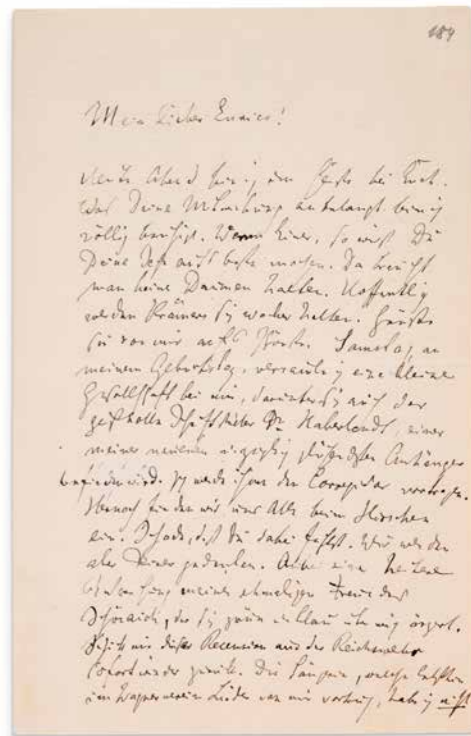 184
Mein lieber Enrico!
Heute Abend bin ich im Geiste bei Euch.
Was Deine Mitwirkung anbelangt bin ich
völlig beruhigt. Wenn Einer, so wirst Du
Deine Sache aufs beste machen. Da braucht
man keine Daumen halten. Hoffentlich
werden Krämers sich wacker halten. Grüße
sie von mir aufs Samstag, an
meinem Geburtstag, versammelt eine kleine
Gesellschaft bei mir, darunter sich auch der
geistvolle Schriftsteller Dr. Haberlandt, einer
meiner neuesten glühendsten Anhänger
befinden wird. Ich werde ihnen den Corregidor vortragen.
Hernach finden wir uns Alle beim Hirschen
ein. Schade, daß Du dabei fehlst. Wir werden
aber Deiner gedenken. Anbei eine heitere
meines ehemaligen Freundes
Schönaich, der sich grün und blau über mich ärgert.
Schick mir diese Recension aus der Reichswehr
sofort wieder zurück. Die Sängerin, welche letzthin
im Wagnerverein Lieder von mir vortrug, habe ich nicht